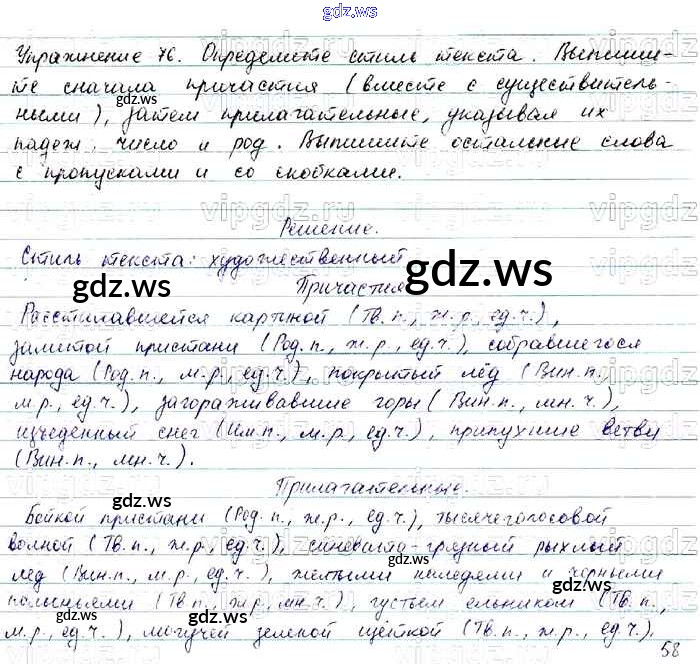 gdz.ws
Упражнение 76. Определите стиль текста. Выпиши-
те сначала причастия (вместе с существитель-
gdz.ws
ными), затем прилагательные, указывая их
падеж, число и род. Выпишите остальные слова
с пропусками и со скобками.
vipgdz.ru vipgdz.ru vipgdz
Решение.
Стиль текста: художественный
gdz.ws gdz.ws
Причастия
Расстилавшейся картиной (Тв.п., ж.р., ед.ч.),
залитой пристани (Род.п., ж.р., ед.ч.), собравшегося
народа (Род.п., м.р., ед.ч.), покрытый лёд (Вин.п.,
м.р., ед.ч.), загораживавшие горы (Вин.п., мн.ч.),
изъеденный снег (Им.п., м.р., ед.ч.), припухшие ветви
(Вин.п., мн.ч.).
Прилагательные.
gdz.ws gdz.ws
Бойкой пристани (Род.п., ж.р., ед.ч.), тысячеголосовой
волной (Тв.п., ж.р., ед.ч.), синевато-грязный рыхлый
лёд (Вин.п., м.р., ед.ч.), жёлтыми наледями и чёрными
полыньями (Тв.п., ж.р., мн.ч.), густым ельником (Тв.п.,
gdz.ws gdz.ws
м.р., ед.ч.), могучей зелёной щёткой (Тв.п., ж.р., ед.ч.).
58